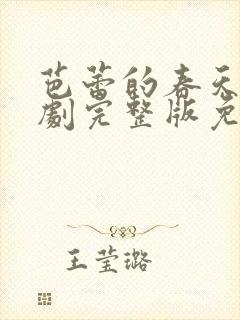 芭蕾的春天
劇完整版免
王莹璐